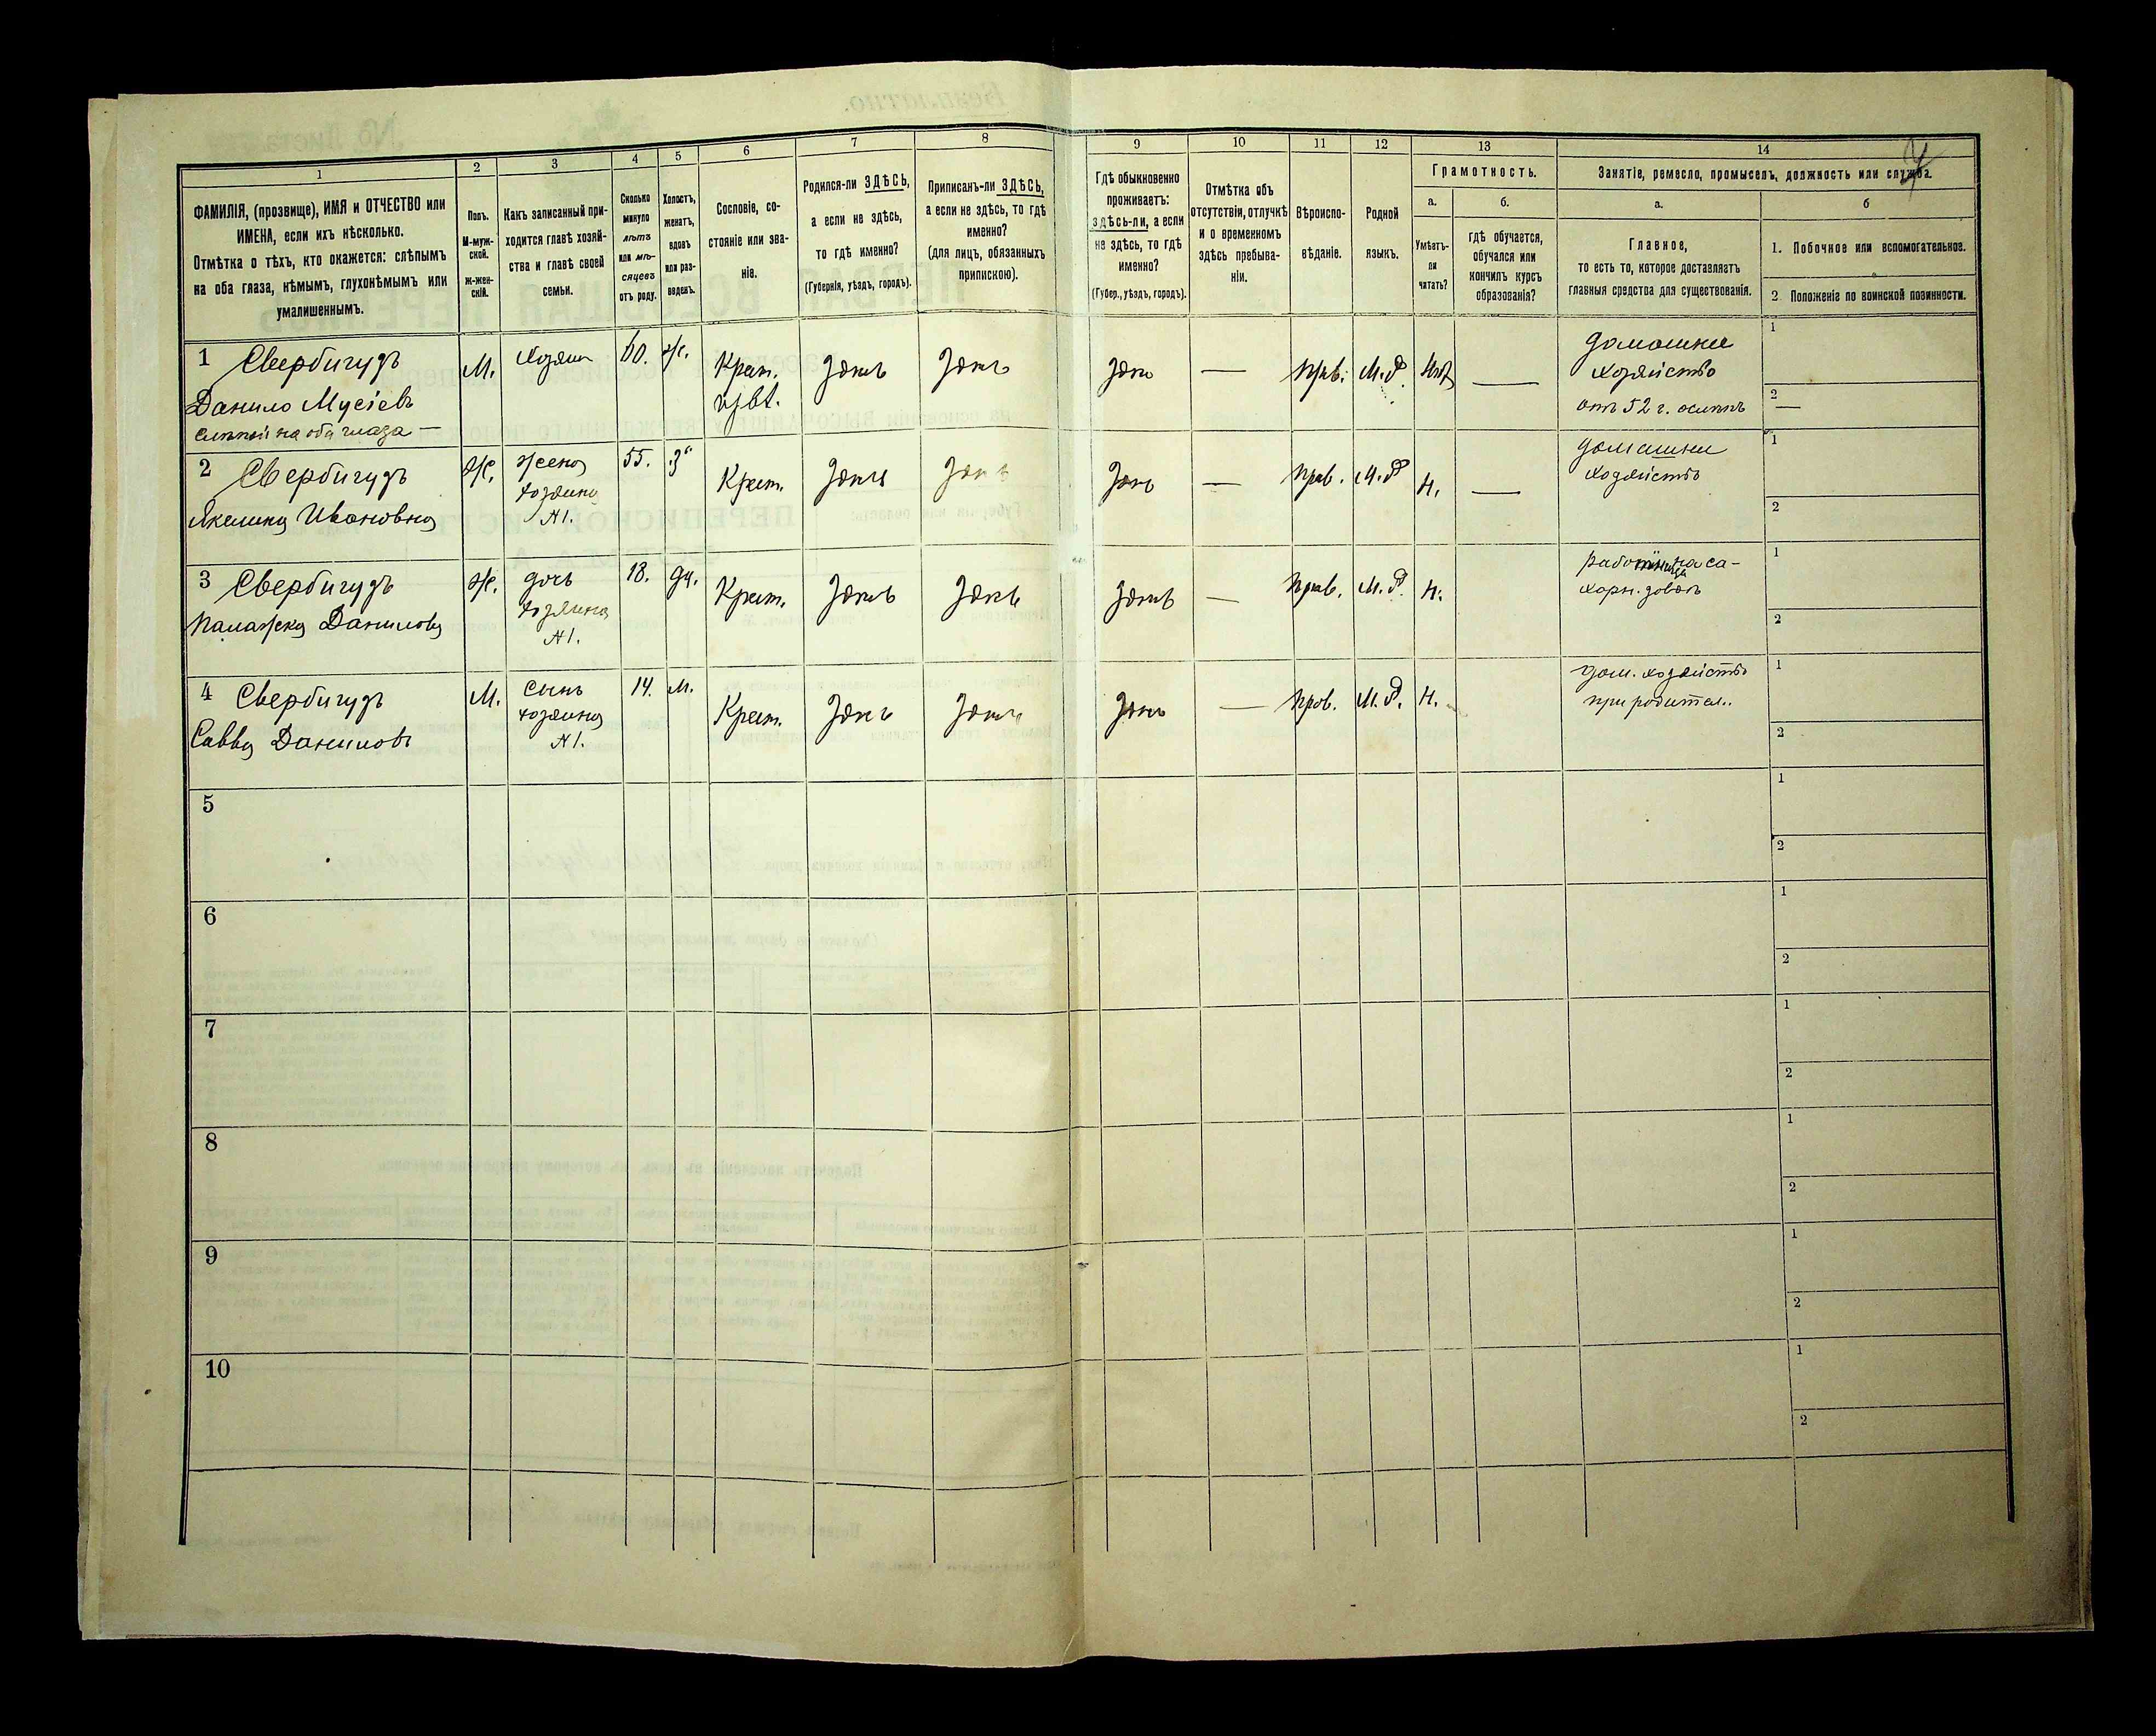 1
2
3
4
5
6
7
8
9
10
11
12
13
14
ФАМИЛІЯ, (прозвище), ИМЯ и ОТЧЕСТВО или
ИМЕНА, если ихъ нѣсколько.
Отмѣтка о тѣхъ, кто окажется: слѣпымъ
на оба глаза, нѣмымъ, глухонѣмымъ или
умалишеннымъ.
Полъ.
М-муж-
ской.
Ж-жен-
скій.
Какъ записанный при-
ходится главѣ хозяй-
ства и главѣ своей
семьи.
Сколько
минуло
лѣтъ
или мѣ-
сяцевъ
отъ роду.
Холостъ,
женатъ,
вдовъ
или раз-
веденъ.
Сословіе, со-
стояніе или зва-
ніе.
Родился-ли ЗДѢСЬ,
а если не здѣсь,
то гдѣ именно?
(Губернія, уѣздъ, городъ).
Приписанъ-ли ЗДѢСЬ,
а если не здѣсь, то гдѣ
именно?
(для лицъ, обязанныхъ
припискою).
Гдѣ обыкновенно
проживаетъ:
здѣсь-ли, а если
не здѣсь, то гдѣ
именно?
(Губер., уѣздъ, городъ).
Отмѣтка объ
отсутствіи, отлучкѣ
и о временномъ
здѣсь пребыва-
ніи.
Вѣроиспо-
вѣданіе.
Родной
языкъ.
Грамотность.
а.
б.
Умѣетъ-
ли
читать?
гдѣ обучается,
обучался или
кончилъ курсъ
образованія?
Занятіе, ремесло, промыселъ, должность или служба.
а.
б
Главное,
то есть то, которое доставляетъ
главныя средства для существованія.
1. Побочное или вспомогательное.
2 Положеніе по воинской повинности.
1 Свербигузъ
Данило Мусіевъ
слѣпый на оба глаза —
М.
Хозяин
60.
Ж.
Крест.
Здѣсь
Здѣсь
Здѣсь
—
Прав.
М. Р.
—
домашнее
хозяйство
отъ 52 г. ослѣпъ
1
2
—
2 Свербигузъ
Якелина Ивановна
Ж.
жена
хозяина
N1.
55.
З
Крест.
Здѣсь
Здѣсь
Здѣсь
—
Прав.
М. Р.
Н.
—
домашнее
хозяйство
1
2
3 Свербигузъ
Палажка Данилова
Ж.
дочь
хозяина
N1.
18.
дѣ.
Крест.
Здѣсь
Здѣсь
Здѣсь
—
Прав.
М. Р.
Н.
работница на са-
харн. завод
1
2
4 Свербигузъ
Савва Даниловъ
М.
сынъ
хозяина
N1.
14.
М.
Крест.
Здѣсь
Здѣсь
Здѣсь
—
Прав.
М. Р.
Н.
дом. хозяйство
при родител.
1
2
5
1
2
6
1
2
7
1
2
8
1
2
9
1
2
10
1
2